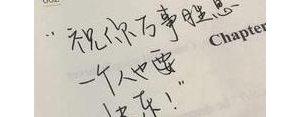 "祝你万事胜意
Chapter
一个人也要
快乐!"